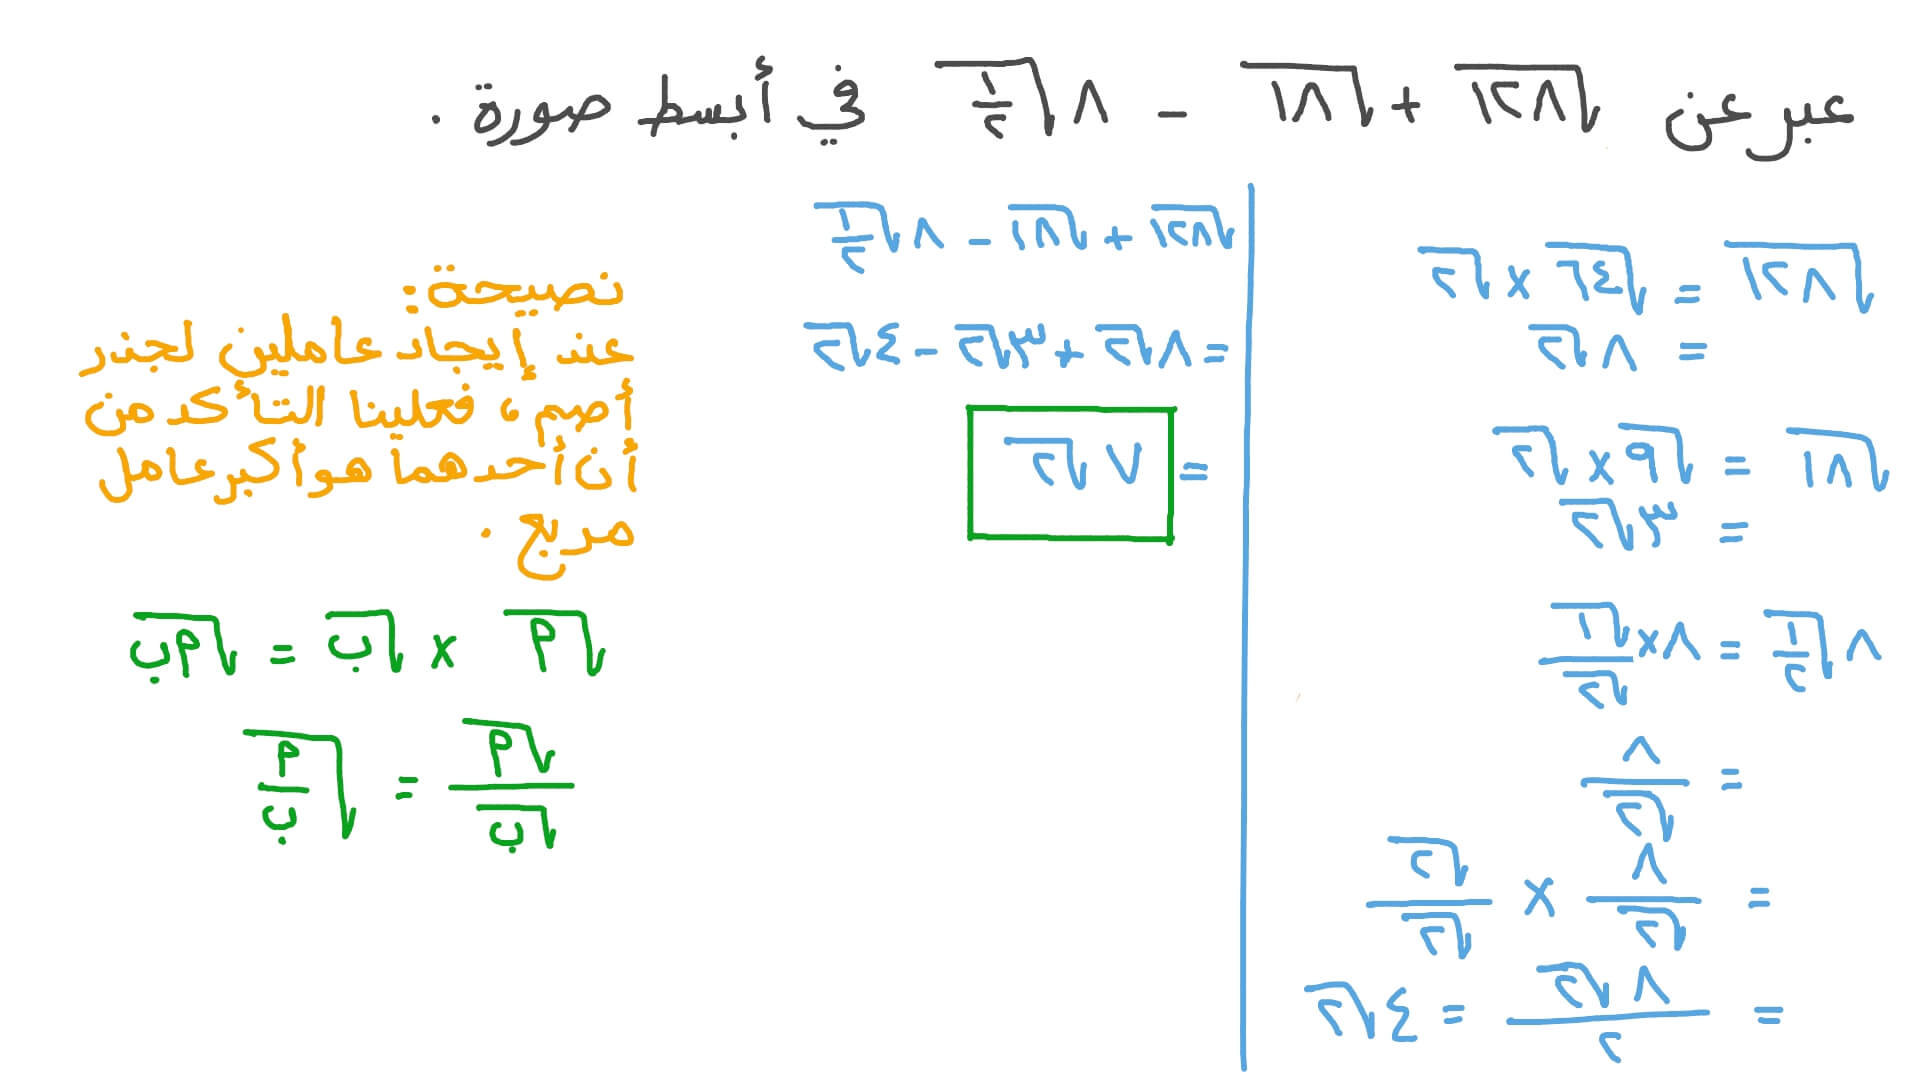 عبر عن √١٢٨ + √١٨ − ٨√(١/٢) في أبسط صورة .
√١٢٨ = √٦٤ × √٢
= ٨√٢
√١٨ = √٩ × √٢
= ٣√٢
٨√(١/٢) = ٨ × √١/√٢
= ٨/√٢
= ٨/√٢ × √٢/√٢
= ٨√٢/٢ = ٤√٢
√١٢٨ + √١٨ − ٨√(١/٢)
= ٨√٢ + ٣√٢ − ٤√٢
= ٧√٢
نصيحة:
عند إيجاد عاملين لجذر
أصم، فعلينا التأكد من
أن أحدهما هو أكبر عامل
مربع .
√أ × √ب = √أب
√أ/√ب = √(أ/ب)